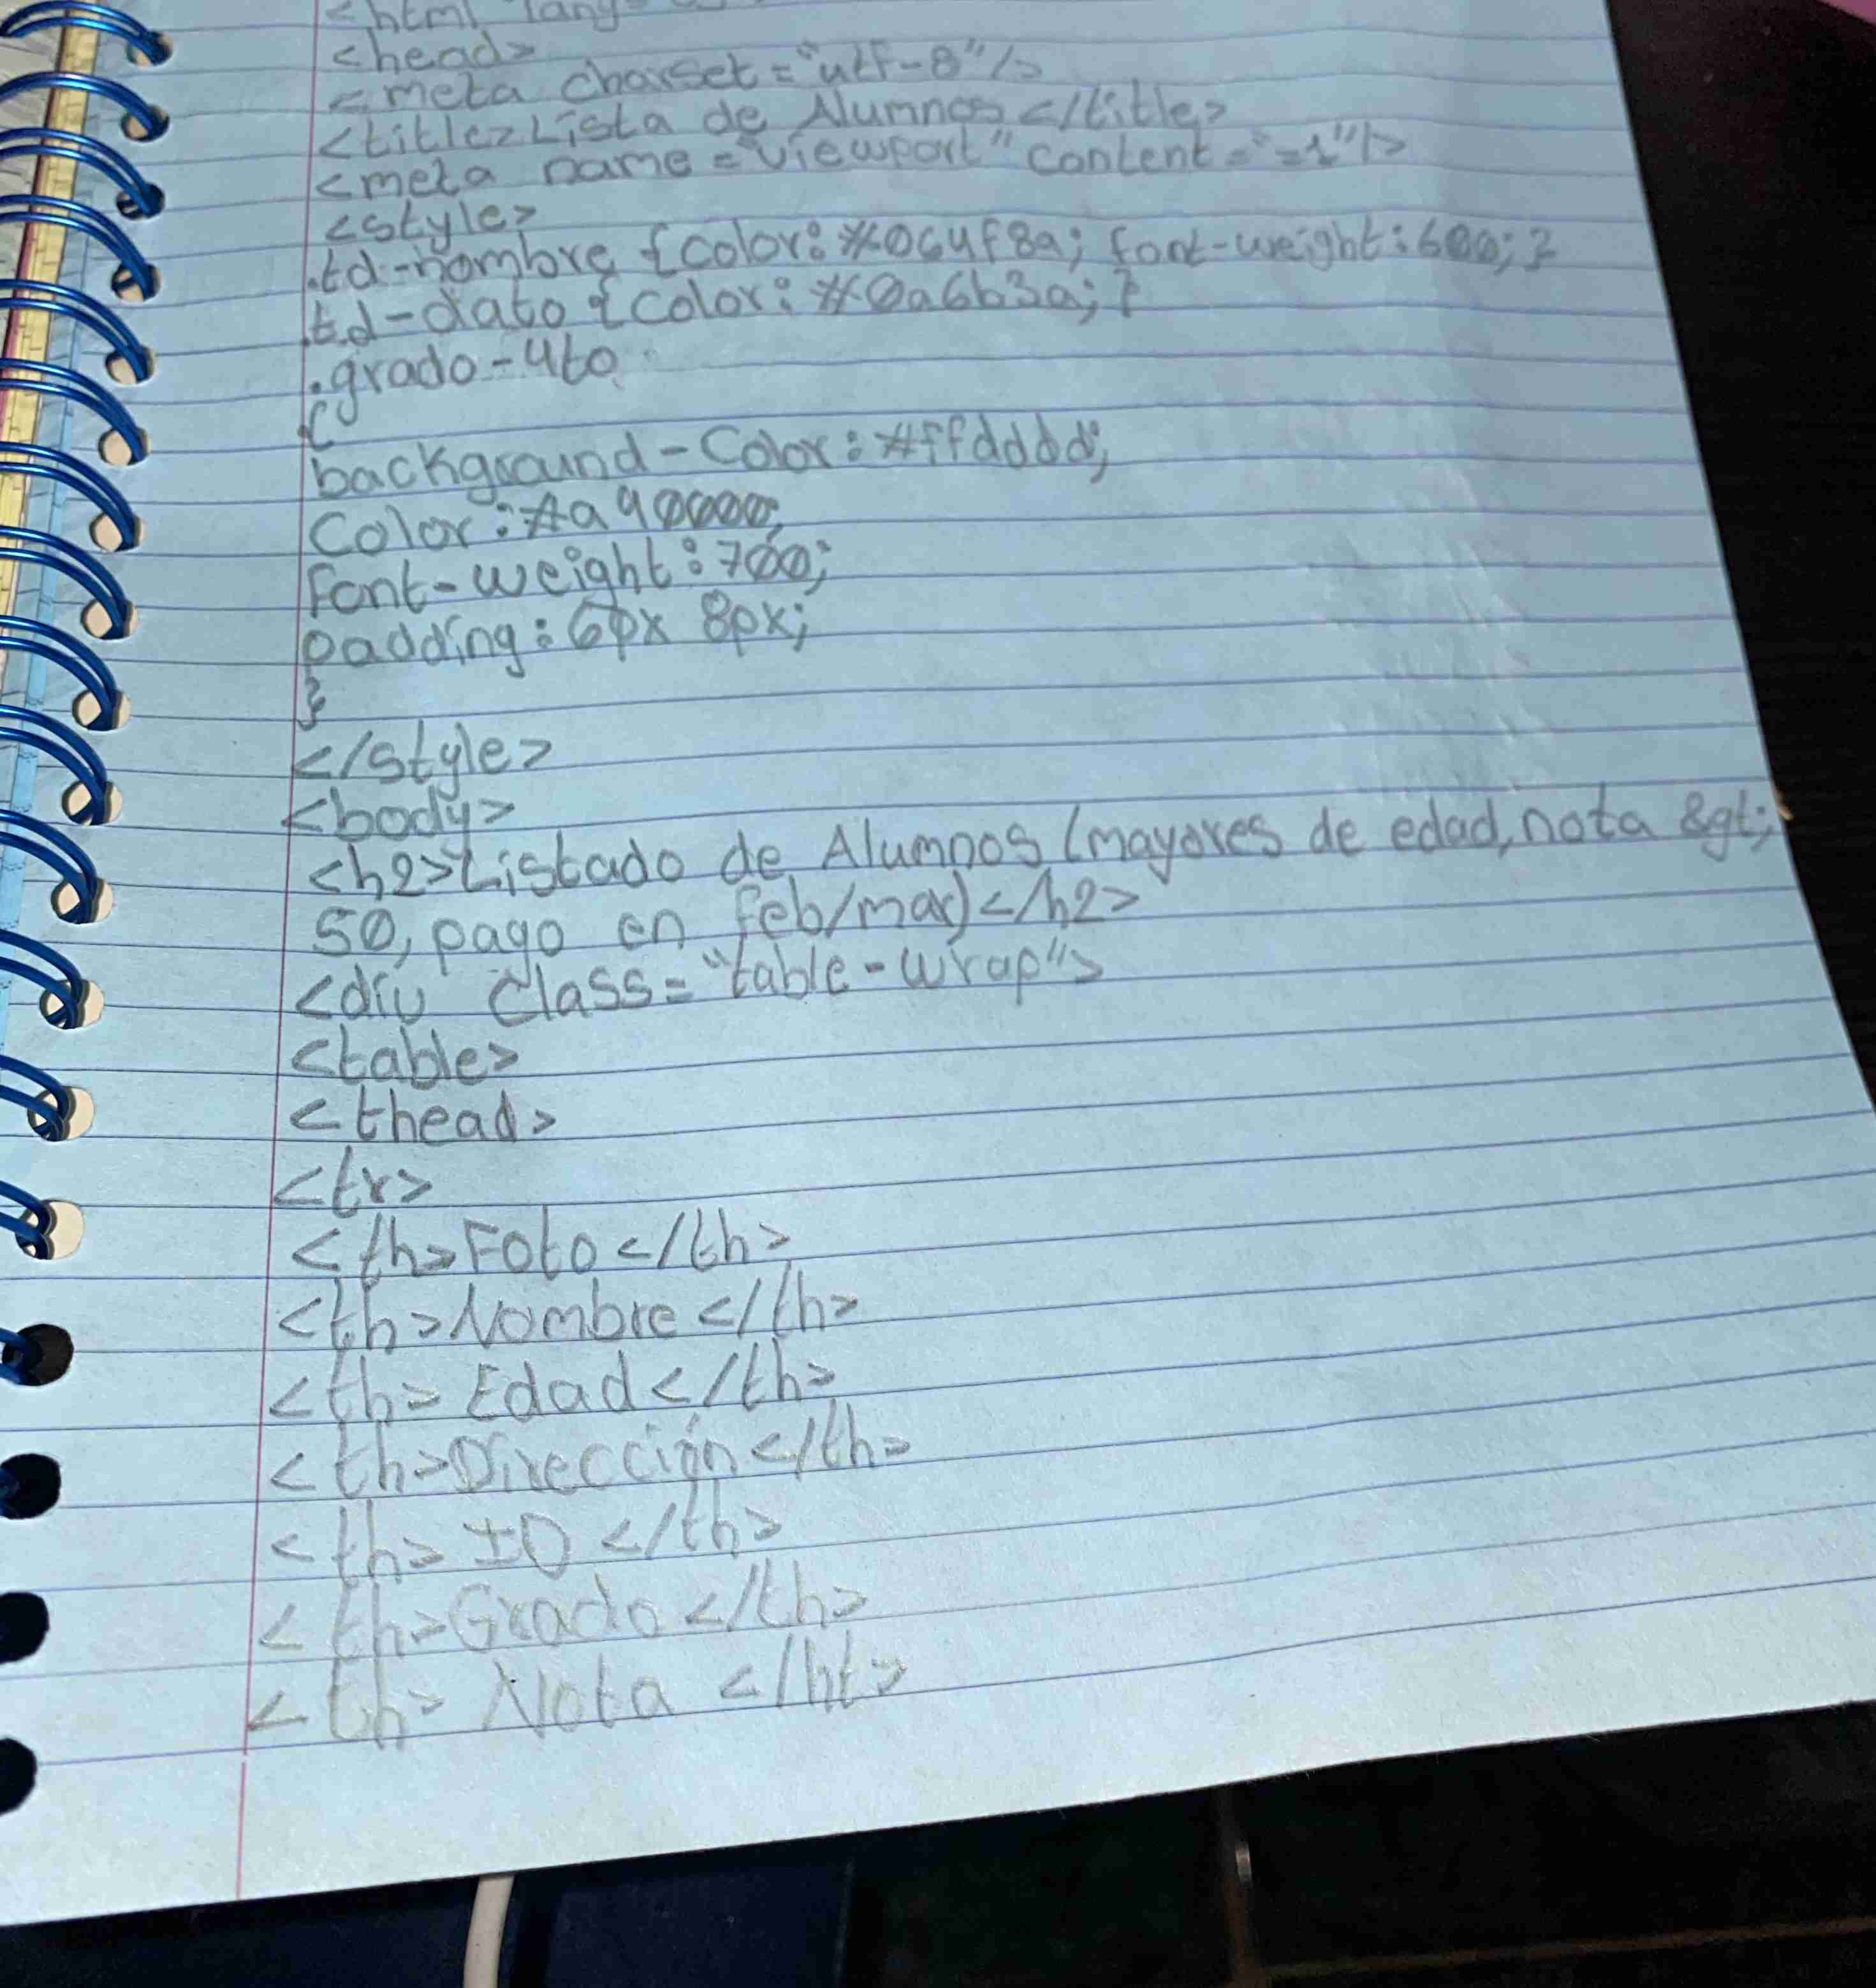 <html lang
<head>
<meta charset="utf-8"/>
<title>Lista de Alumnos </title>
<meta name="viewport" content="=1"/>
<style>
.td-nombre {color: #064f8a; font-weight:600;}
.td-dato {color: #0a6b3a;}
.grado-4to
{
background-Color: #ffdddd;
Color: #a90000;
font-weight: 700;
padding: 6px 8px;
}
</style>
<body>
<h2>Listado de Alumnos (mayores de edad, nota &gt;
50, pago en feb/mar)</h2>
<div Class="table-wrap">
<table>
<thead>
<tr>
<th>Foto</th>
<th>Nombre</th>
<th>Edad</th>
<th>Dirección</th>
<th>ID</th>
<th>Grado</th>
<th>Nota</ht>